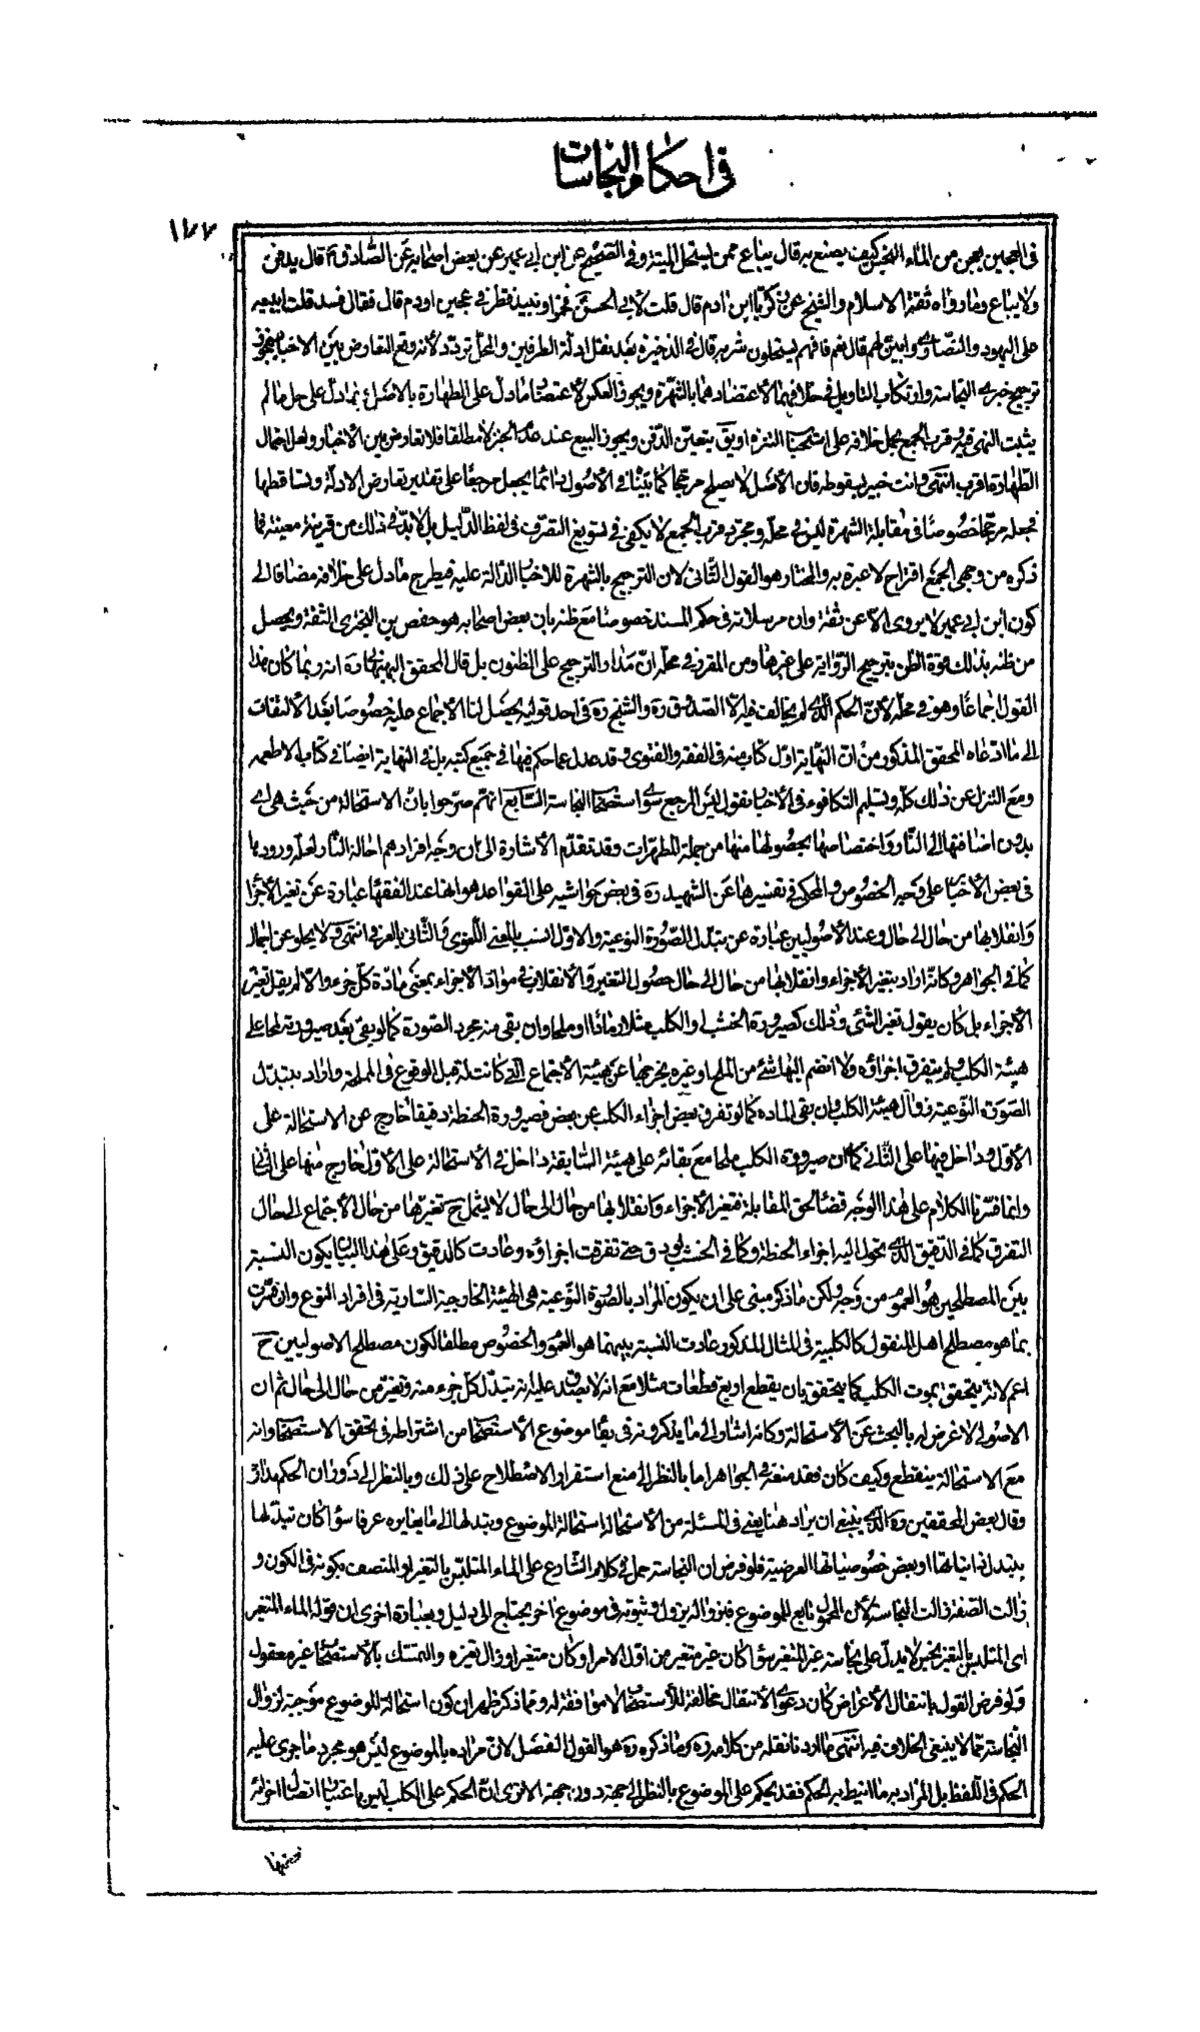 في احكام النجاسات
١٨٧
في العجين يعجن من الماء النجس كيف يصنع به قال يباع ممن يستحل الميتة وفي الصحيح عن ابن ابي عمير عن بعض اصحابه عن الصادق ع قال يدفن
ولا يباع وما رواه ثقة الاسلام والشيخ عن زكريا ابن ادم قال قلت لأبي الحسن ع خمر او نبيذ قطر في عجين او دم قال فقال فسد قلت ابيعه
على اليهود والنصارى وابين لهم قال نعم فانهم يستحلون شربه قال في الذخيرة بعد نقل ادلة الطرفين والمحل تردد لأنه وقع التعارض بين الاخبار فيجوز
ترجيح خبري النجاسة وارتكاب التأويل في خلافهما لأعتضادهما بالشهرة ويجوز العكس لأعتضاد ما دل على الطهارة بالأصل بما دل على حل ما لم
يثبت النهي فيه وقرب الجمع بحمل خلافه على استحباب التنزه او يق يتعين الدفن ويجوز البيع عند الخبز لا مطلقا فلا تعارض بين الأخبار ولعل احتمال
الطهارة اقرب انتهى وانت خبير بسقوطه فان الأصل لا يصلح مرجحا كما بيناه في الأصول وانما يجعل مرجعا على تقدير تعارض الادلة وتساقطها
فجعله مرجحا خصوصا في مقابلة الشهرة ليس في محله ومجرد قرب الجمع لا يكفي في تسويغ التصرف في لفظ الدليل بل لا بد في ذلك من قرينة معينة فما
ذكره من وجهي الجمع اقتراح لا عبرة به والمختار هو القول الثاني لان الترجيح بالشهرة للاخبار الدالة عليه فيطرح ما دل على خلافه مضافا الى
كون ابن ابي عمير لا يروي الا عن ثقة وان مرسلاته في حكم المسند خصوصا مع ظنه بان بعض اصحابه هو حفص بن البختري الثقة ويحصل
من ظنه بذلك قوة الظن بترجيح الرواية على غيرها ومن المقرر في محله ان مدار الترجيح على الظنون بل قال المحقق البهبهاني ره انه ربما كان هذا
القول اجماعا وهو في محله لأن الحكم الذي لم يخالف فيه الا الصدوق ره والشيخ ره في احد قوليه يحصل لنا الأجماع عليه خصوصا بعد الألتفات
الى ما ادعاه المحقق المذكور من ان النهاية اول كتاب منه في الفقه والفتوى وقد عدل عما حكم فيها في جميع كتبه بل في النهاية ايضا في كتاب الاطعمه
ومع التنزل عن ذلك كله وتسليم التكافوء في الأخبار نقول ليس المرجع سوى استصحاب النجاسة السابع انهم صرحوا بان الاستحالة من حيث هي اي
بدون اضافتها الى النار واختصاصها بحصولها منها من جملة المطهرات وقد تقدم الأشارة الى ان وجه افرادهم احالة النار لعله ورودها
في بعض الأخبار على وجه الخصوص والمحكي في تفسيرها عن الشهيد ره في بعض حواشيه على القواعد هو انها عند الفقهاء عبارة عن تغير الأجزاء
وانقلابها من حال الى حال وعند الأصوليين عبارة عن تبدل الصورة النوعية والاول انسب بالمعنى اللغوي والثاني بالعرفي انتهى ولا يخلو عن اجمال
كما في الجواهر وكانه اراد بتغير الأجزاء وانقلابها من حال الى حال حصول التغير والأنقلاب في مواد الأجزاء بمعنى مادة كل جزء والا لم يقل تغير
الأجزاء بل كان يقول تغير الشئ وذلك كصيرورة الخشب او الكلب مثلا رمادا او ملحا وان بقي منه مجرد الصورة كما لو بقي بعد صيرورته ملحا على
هيئة الكلب ولم يتفرق اجزاؤه ولا انضم اليها شئ من الملح او غيره يخرجها عن هيئة الأجتماع التي كانت له قبل الوقوع في المملحة واراد بتبدل
الصورة النوعية زوال هيئة الكلب وان بقي الماده كما لو تفرق بعض اجزاء الكلب عن بعض فصيرورة الحنطة دقيقا خارج عن الاستحالة على
الأول وداخل فيها على الثاني كما ان صيرورة الكلب ملحا مع بقائه على هيئة السابقة داخل في الأستحالة على الأول خارج منها على الثاني
وانما فسرنا الكلام على هذا الوجه قضاء لحق المقابلة فتغير الأجزاء وانقلابها من حال الى حال لا يشمل ح تغيرها من حال الأجتماع الى حال
التفرق كما في الدقيق الذي تحول اليه اجزاء الحنطة وكما في الخشب لو دق حتى تفرقت اجزاؤه وعادت كالدقيق وعلى هذا البيان يكون النسبة
بين المصطلحين هو العموم من وجه ولكن ما ذكر مبني على ان يكون المراد بالصورة النوعية هي الهيئة الخارجية السارية في افراد النوع وان فسرت
بما هو مصطلح اهل المنقول كالكلبية في المثال المذكور عادت النسبة بينهما هو العموم والخصوص مطلقا لكون مصطلح الاصوليين ح
اعم لانه يتحقق بموت الكلب كما يتحقق بان يقطع اربع قطعات مثلا مع انه لا يصدق عليه انه تبدل كل جزء منه وتغير من حال الى حال ثم ان
الاصولي لا غرض له بالبحث عن الأستحالة وكانه اشار الى ما يذكرونه في بقاء موضوع الأستصحاب من اشتراطه في تحقق الاستصحاب وانه
مع الاستحالة ينقطع وكيف كان فقد منعه في الجواهر اما بالنظر الى منع استقرار الاصطلاح على ذلك وبالنظر الى دوران الحكم مداره
وقال بعض المحققين ره الذي ينبغي ان يراد هنا يعني في المسئلة من الأستحالة استحالة الموضوع وتبدلها الى ما يغايره عرفا سواء كان تبدلها
بتبدل ذاتياتها او بعض خصوصياتها العرضية فلو فرض ان النجاسة حمل في كلام الشارع على الماء المتلبس بالتغير او المتصف بكونه في الكون و
زالت الصفة زالت النجاسة لأن المحمول تابع للموضوع فبزواله يزول وثبوته في موضوع اخر يحتاج الى دليل وبعبارة اخرى ان قوله الماء المتغير
اي المتلبس بالتغير نجس لا يدل على نجاسة غير المتغير سواء كان غير متغير من اول الامر او كان متغيرا وزال تغيره والتمسك بالأستصحاب غير معقول
ولو فرض القول بانتقال الأعراض كان دعوى الأنتقال مخالفة للأستصحاب لا موافقة له ومما ذكر ظهر ان كون استحالة الموضوع موجبة لزوال
النجاسة مما لا ينبغي الخلاف فيه انتهى ما اردنا نقله من كلامه ره وما ذكره ره هو القول الفصل لان مراده بالموضوع ليس هو مجرد ما جرى عليه
الحكم في اللفظ بل المراد به ما انيط به الحكم فقد يحكم على الموضوع بالنظر الى جهة دون جهة الا ترى ان الحكم على الكلب ليس باعتبار اتصال اجزائه